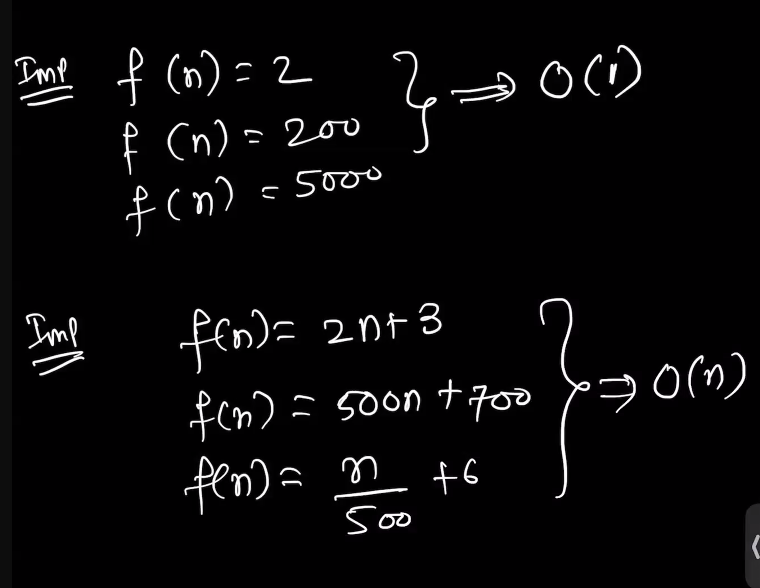 Imp f(n) = 2
f(n) = 200 } ⇒ O(1)
f(n) = 5000
Imp f(n) = 2n+3
f(n) = 500n + 700 } ⇒ O(n)
f(n) = n/500 + 6